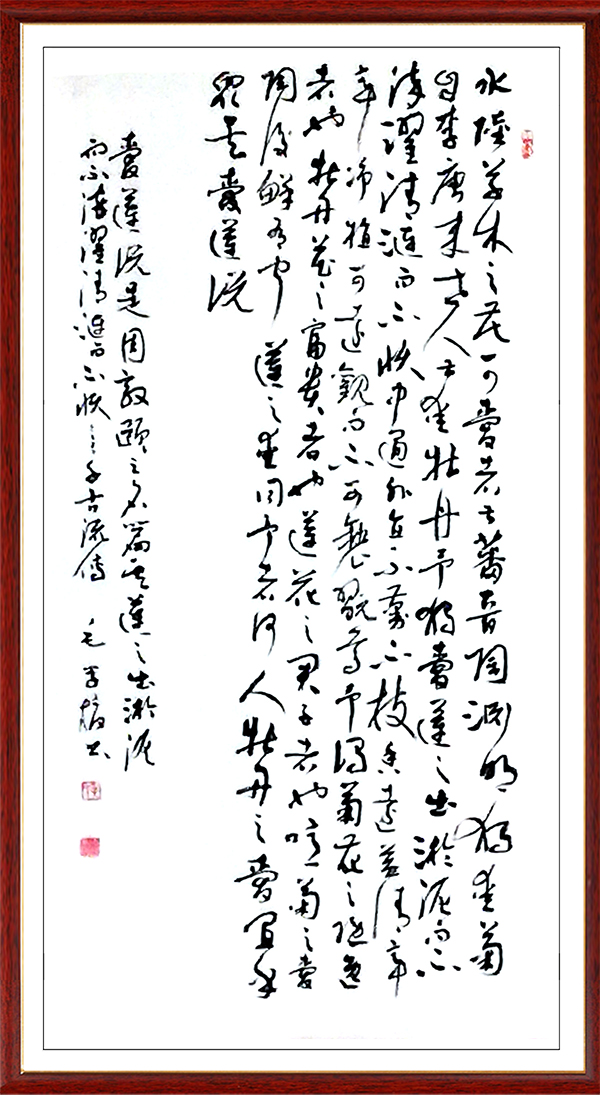 水陸草木之花可愛者甚蕃晉陶淵明獨愛菊
自李唐来世人甚愛牡丹予獨愛蓮之出淤泥而不
染濯清漣而不妖中通外直不蔓不枝香遠益清亭
亭净植可遠觀而不可褻翫焉予謂菊花之隱逸
者也牡丹花之富貴者也蓮花之君子者也噫菊之愛
陶後鮮有聞蓮之愛同予者何人牡丹之愛宜乎
衆矣愛蓮説
愛蓮説是周敦頤之名篇其蓮之出淤泥
而不染濯清漣而不妖之千古流傳 毛 书